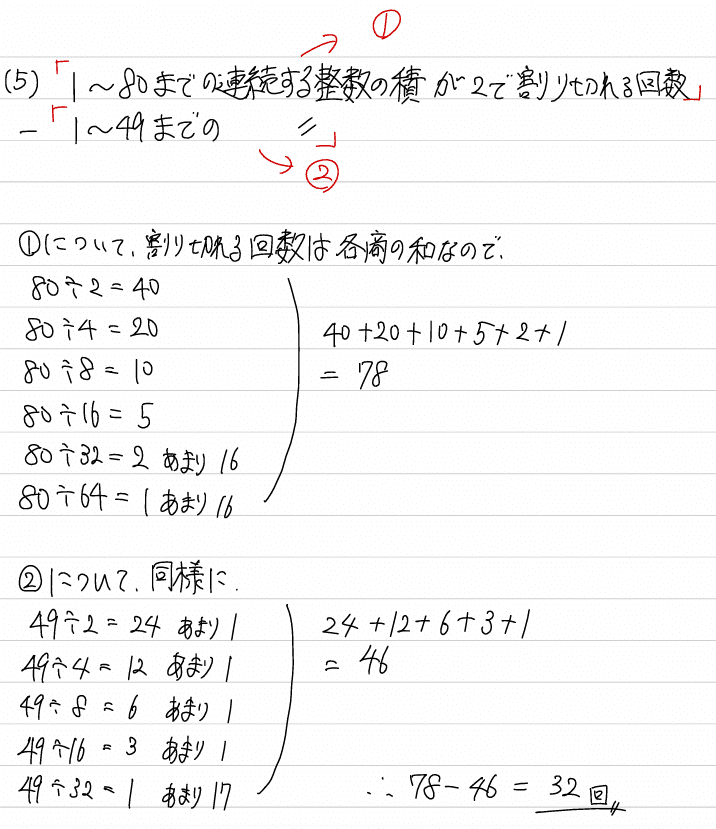 ①
(5)「1～80までの連続する整数の積が2で割り切れる回数」
－「1～49までの 〃」
②
①について、割り切れる回数は各商の和なので、
80÷2=40
80÷4=20
40+20+10+5+2+1
80÷8=10
=78
80÷16=5
80÷32=2 あまり16
80÷64=1 あまり16
②について、同様に、
49÷2=24 あまり1
24+12+6+3+1
49÷4=12 あまり1
=46
49÷8=6 あまり1
49÷16=3 あまり1
49÷32=1 あまり17
∴78-46=32回〃